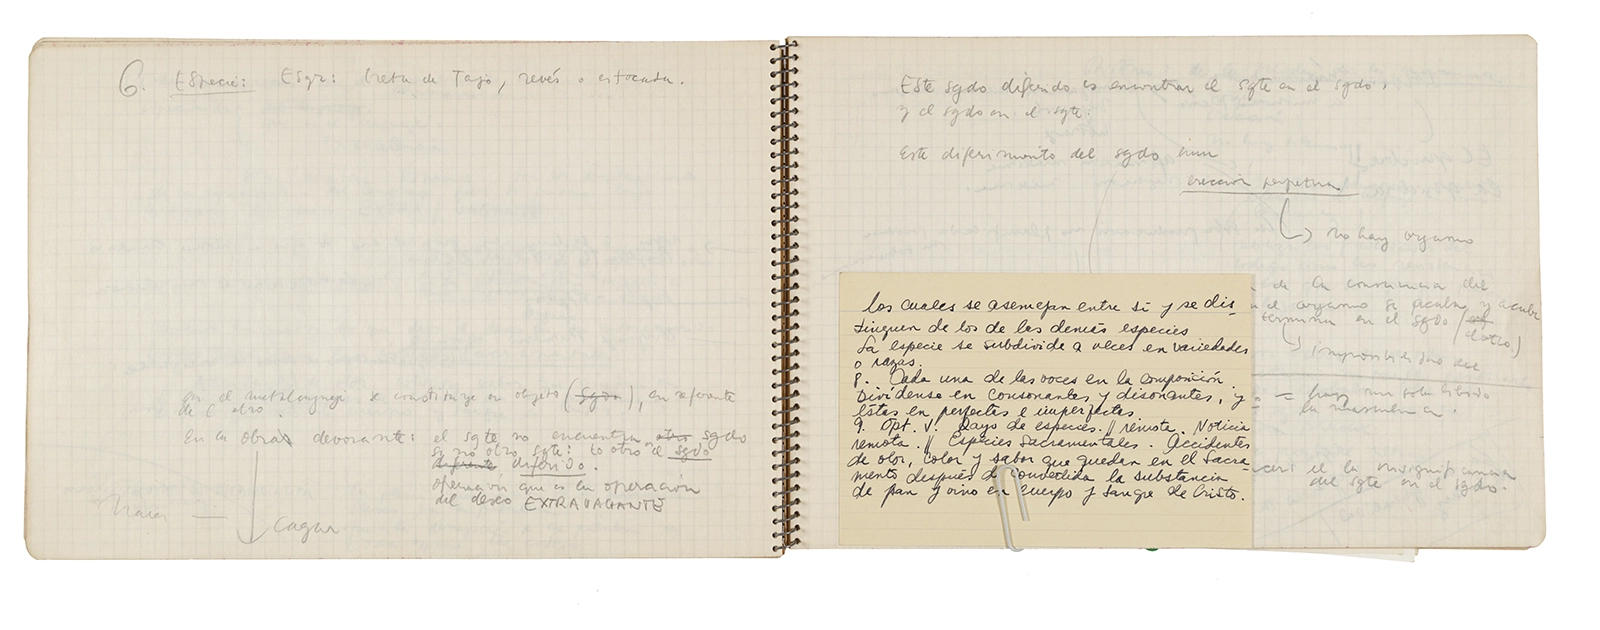 6. Especie: Esgr: treta de Tajo, revés o estocada.
en el metalenguaje se constituye en objeto (sgdo), en referente
de otro.
En la obra devorante: el sgte no encuentra otro sgdo
si no otro sgte: lo otro el sgdo
diferente diferido.
operación que es la operación
del deseo EXTRAVAGANTE
Cagar
Este sgdo diferido es encontrar el sgte en el sgdo,
y el sgdo en el sgte.
Este diferimiento del sgdo
erección perpetua
no hay orgasmo
de la conciencia del
el orgasmo se acaba y acaba
termina en el sgdo (el
imposibilidad
= hay una sola libido
la masculina.
el la insignificancia
del sgte en el sgdo.
los cuales se asemejan entre si y se dis-
tinguen de los de las demás especies
La especie se subdivide a veces en variedades
o razas.
8. Cada una de las voces en la composición.
Divídense en consonantes y disonantes, y
éstas en perfectas e imperfectas
9. Opt. V. Rayo de especies. // remota. Noticia
remota. // Especies Sacramentales. Accidentes
de olor, color y sabor que quedan en el Sacra-
mento después de convertida la substancia
de pan y vino en cuerpo y sangre de Cristo.